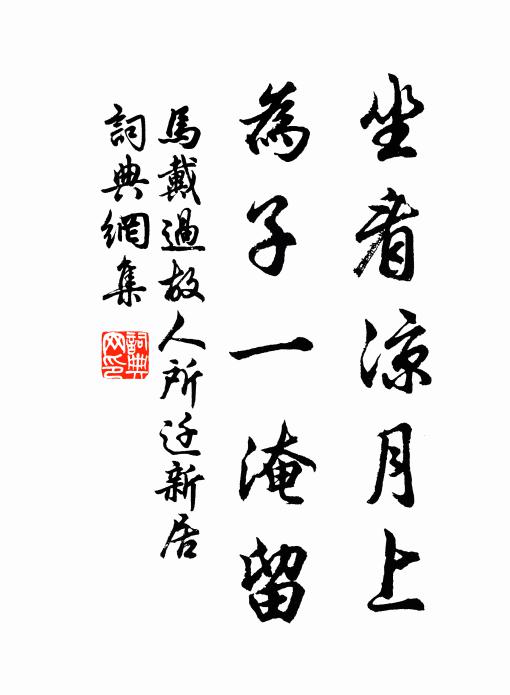 坐看涼月上
為子一淹留
馬戴過故人所迁新居
詞典網集
詞典
网印